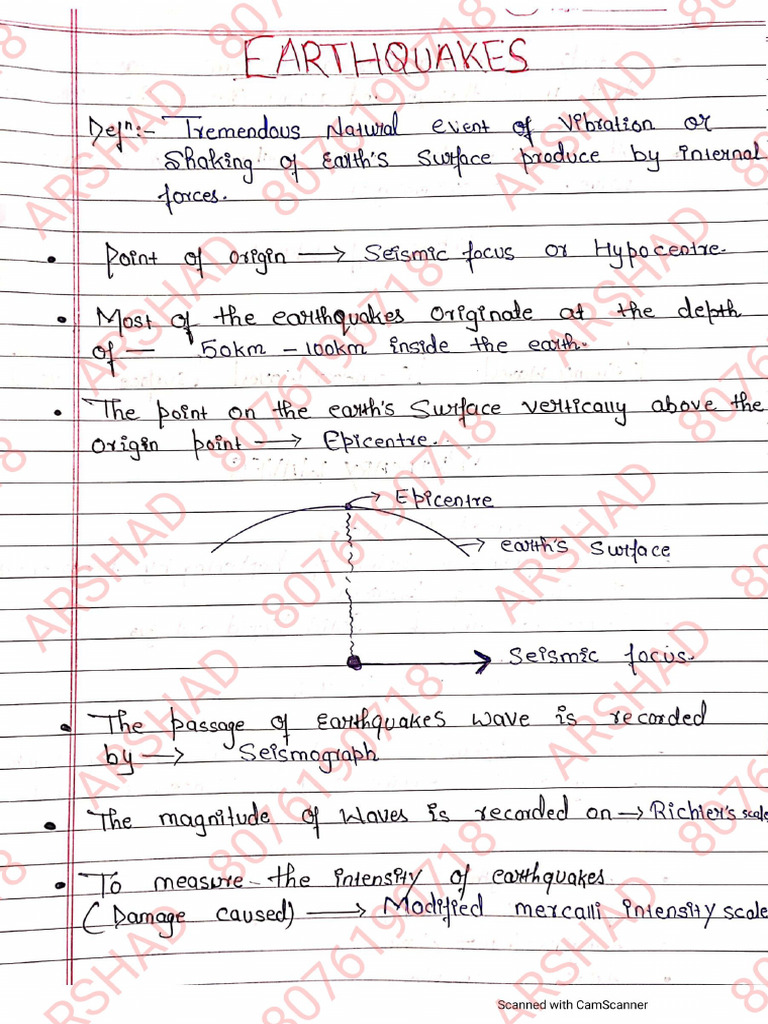 EARTHQUAKES
Defn:- Tremendous Natural event of Vibration or
Shaking of Earth's Surface produce by internal
forces.
• Point of origin → Seismic focus or Hypocentre.
• Most of the earthquakes originate at the depth
of — 50km - 100km inside the earth.
• The point on the earth's Surface vertically above the
origin point → Epicentre.
→ Epicentre
→ earth's Surface
→ Seismic focus.
• The passage of Earthquakes wave is recorded
by → Seismograph
• The magnitude of waves is recorded on → Richter's scale
• To measure the intensity of earthquakes
(Damage caused) → Modified mercalli intensity scale
ARSHAD 8076190718
Scanned with CamScanner